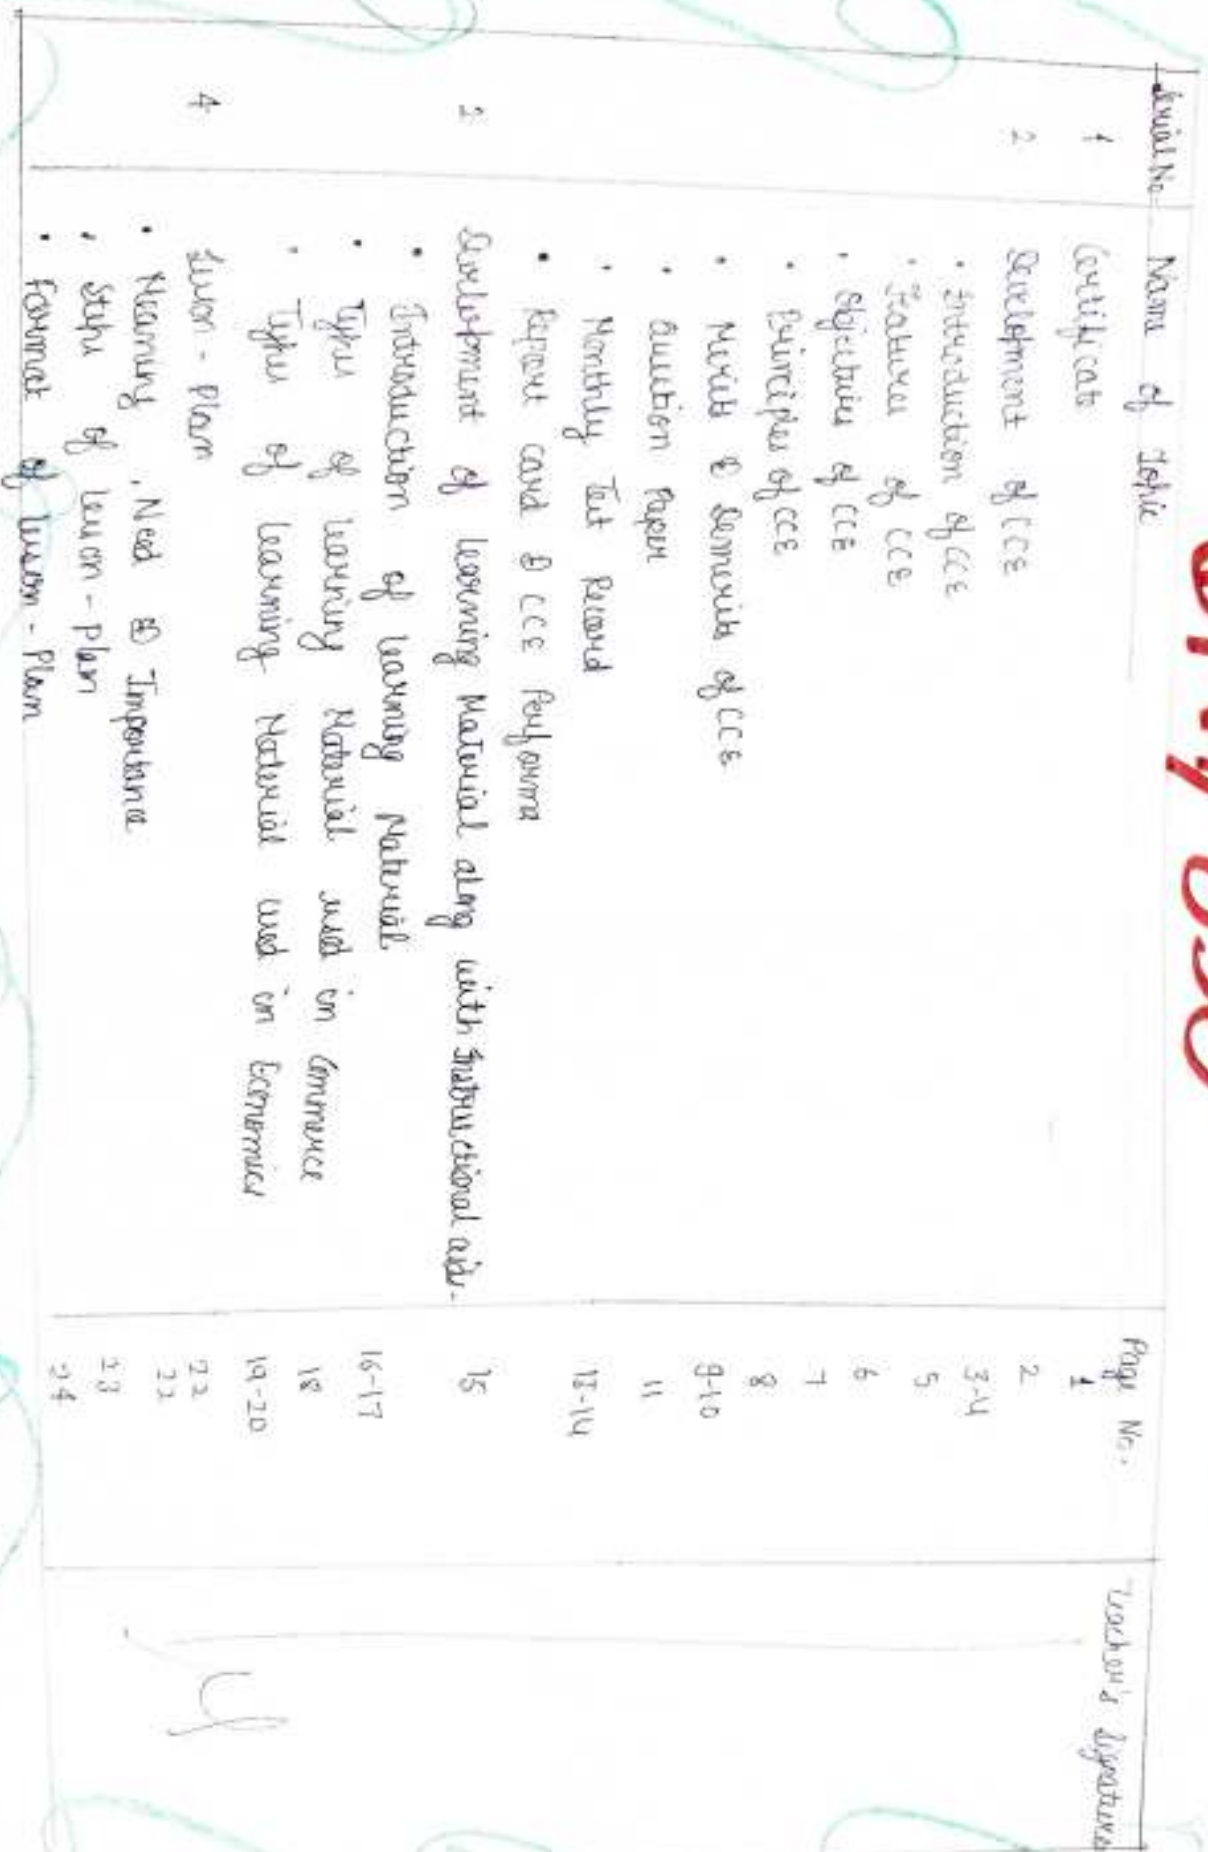 Serial No. Name of Topic Page No. Teacher's Signatures
1 Certificate 1
2 Development of CCE 2
• Introduction of CCE 3-4
• Features of CCE 5
• Objectives of CCE 6
• Principles of CCE 7
8
• Merits & Demerits of CCE 9-10
• Question Paper 11
• Monthly Test Record 13-14
• Report card & CCE Performa
3 Devlopment of learning Material along with Instructional aids. 15
• Introduction of learning Material 16-17
• Types of learning Material used in Commerce 18
• Types of learning Material used in Economics 19-20
4 Lesson - Plan 22
• Meaning, Need & Importance 22
• Steps of lesson - plan 23
• Format of lesson - Plan 24